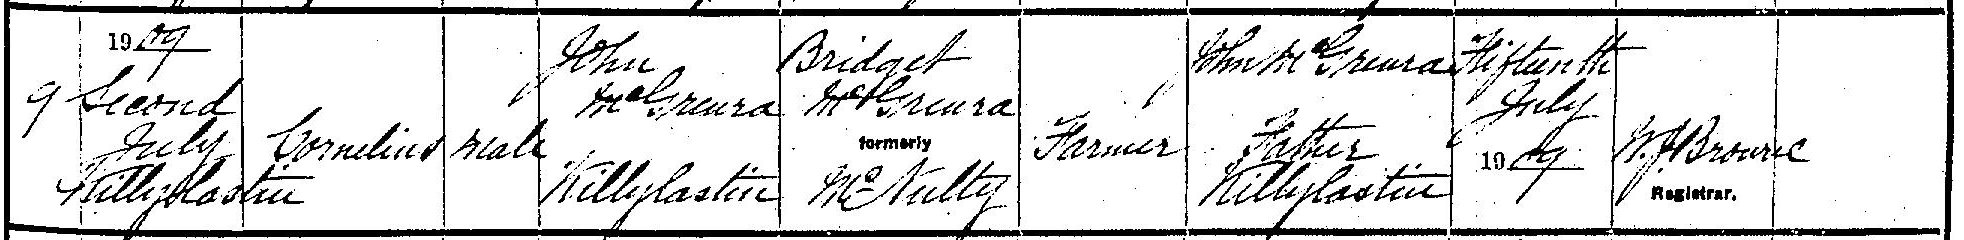 9
1909
Second
July
Killylastin
Cornelius
Male
John
McGreura
Killylastin
Bridget
McGreura
formerly
McNulty
Farmer
John McGreura
Father
Killylastin
Fifteenth
July
1909
W. J. Browne
Registrar.